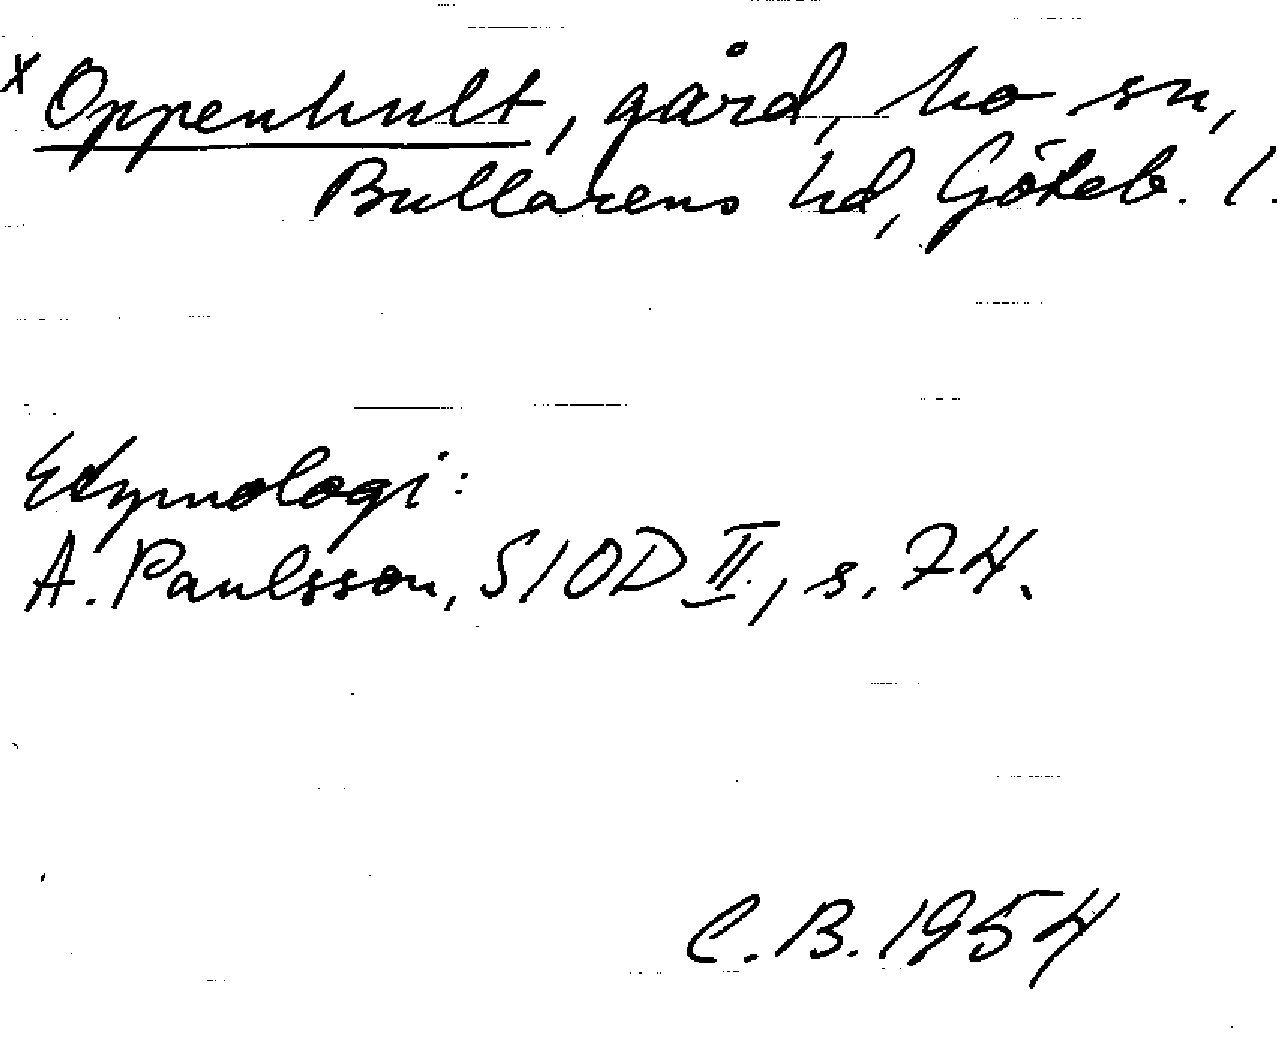 x Oppenhult, gård, ho sn,
Bullarens hd, Göteb. l.
Etymologi:
A. Paulsson, SIOD II, s. 74.
C. B. 1954